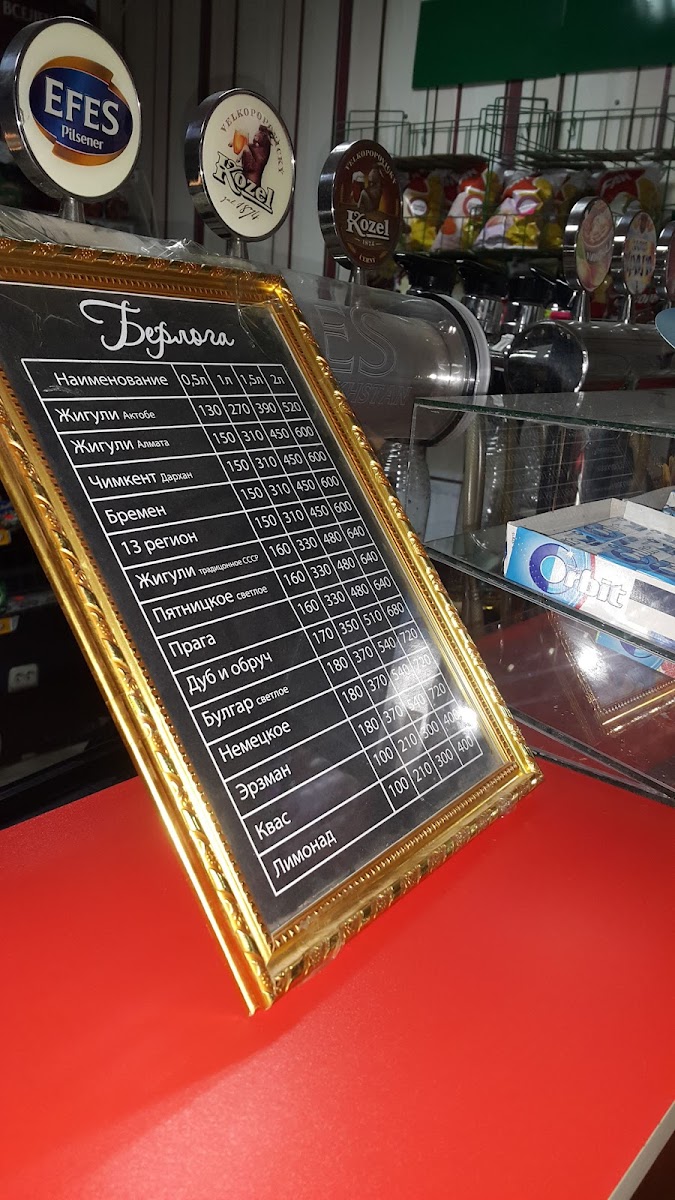 ВСЕЛЕ
EFES
Pilsener
VELKOPOPOVICKÝ
Kozel
1874
VELKOPOPOVICKÝ
Kozel
1874
ČERNÝ
ES
Берлога
Наименование 0,5л 1л 1,5л 2л
Жигули Актобе 130 270 390 520
Жигули Алмата 150 310 450 600
Чимкент Дархан 150 310 450 600
Бремен 150 310 450 600
13 регион 150 310 450 600
Жигули традицонное СССР 160 330 480 640
Пятницкое светлое 160 330 480 640
Прага 160 330 480 640
Дуб и обруч 170 350 510 680
Булгар светлое 180 370 540 720
Немецкое 180 370 540 720
Эрзман 180 370 540 720
Квас 100 210 300 400
Лимонад 100 210 300 400
Orbit